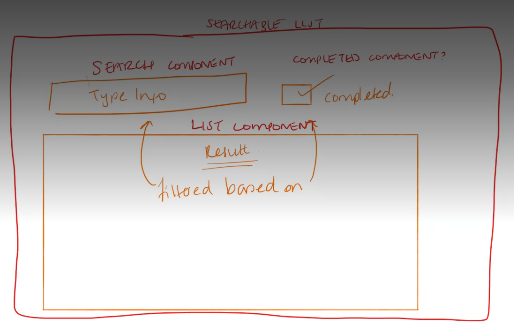 SEARCHABLE LIST
SEARCH COMPONENT
COMPLETED COMPONENT?
Type Info
completed.
LIST COMPONENT
Result
filtered based on